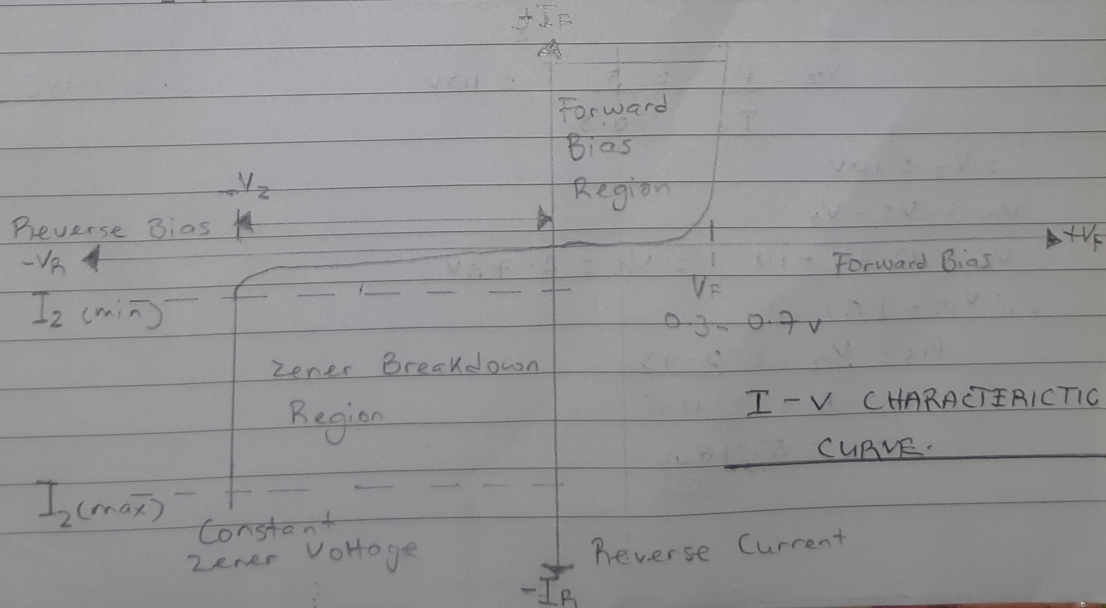 +IF
Forward
Bias
Region
-VZ
Reverse Bias
-VR
+VF
Forward Bias
VF
0.3 - 0.7 v
IZ (min)
Zener Breakdown
Region
I-V CHARACTERICTIC
CURVE.
IZ (max)
Constant
Zener Voltage
Reverse Current
-IR